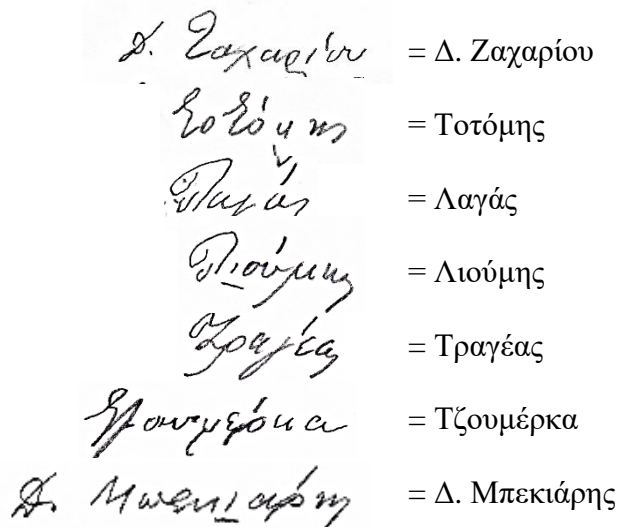 Δ. Ζαχαρίου = Δ. Ζαχαρίου
Τοτόμης = Τοτόμης
Λαγάς = Λαγάς
Λιούμης = Λιούμης
Τραγέας = Τραγέας
Τζουμέρκα = Τζουμέρκα
Δ. Μπεκιάρης = Δ. Μπεκιάρης